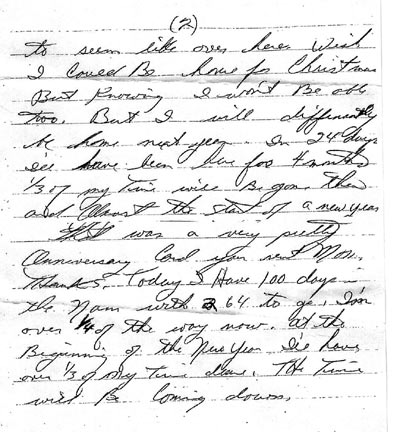 (2)
to seem like over here. Wish
I could Be home for Christmas
But Knowing I won't Be able
too. But I will differently
be home next year. In 24 days
I'll have been here foo 4 months
1/3 of my Time will Be gone then
and almost the start of a new year
That was a very pretty
Anniversary Card you sent Mom.
Thanks. Today I Have 100 days in
the Nam with 264 to go. I'm
over 1/4 of the way now. at the
Beginning of the New Year I'll have
over 1/3 of my Time done. The Time
will Be Coming down.